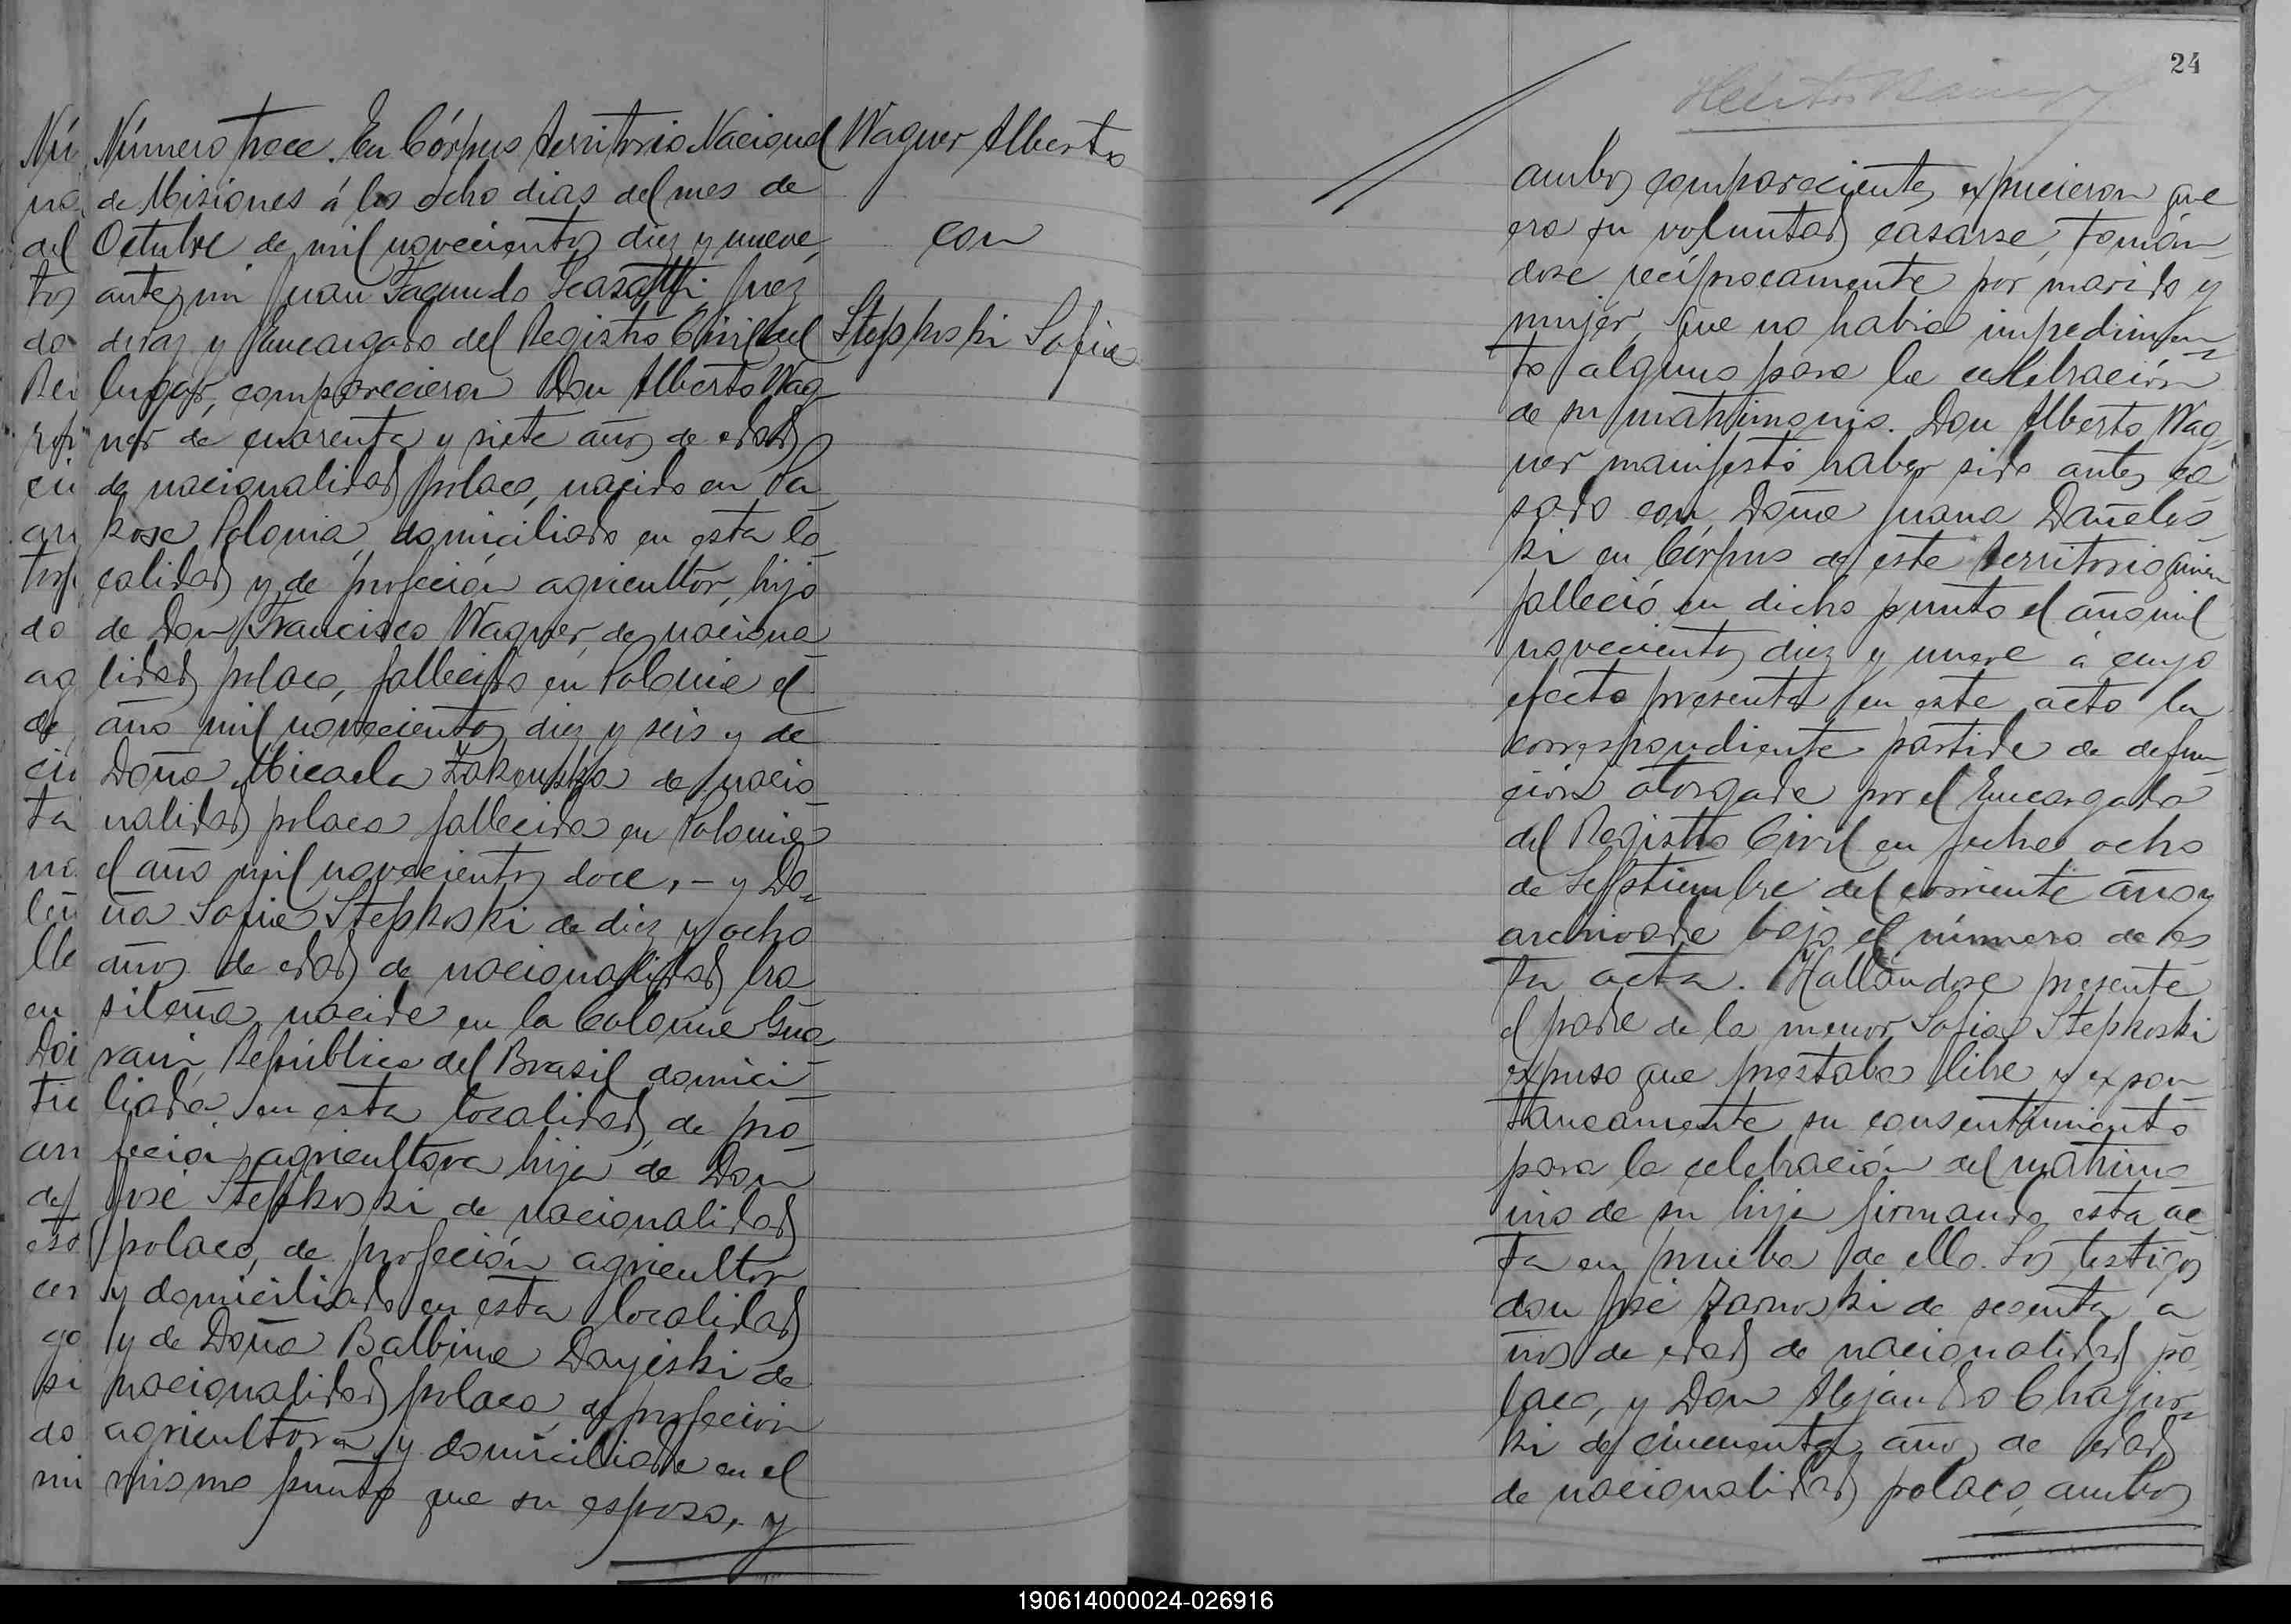 Número trece. En Córpus Territorio Nacional
de Misiones á los ocho dias del mes de
Octubre de mil novecientos diez y nueve,
ante mi Juan Facundo Juez
de Paz y Encargado del Registro Civil del
lugar, comparecieron Don Alberto Wag
ner de cuarenta y siete años de edad,
de nacionalidad polaco, nacido en Pa
kose Polonia, domiciliado en esta lo
calidad y de profeción agricultor, hijo
de Don Francisco Wagner, de naciona
lidad polaco, fallecido en Polonia el
año mil novecientos diez y seis y de
Doña Micaela de nacio
nalidad polaca fallecida en Polonia
el año mil novecientos doce, – y Do
ña Sofia Stepkoski de diez y ocho
años de edad de nacionalidad bra
sileña nacida en la Colonia Gua
rani, República del Brasil domici
liada en esta localidad, de pro
feción agricultora hija de Don
José Stepkoski de nacionalidad
polaco, de profeción agricultor
y domiciliado en esta localidad
y de Doña Balbina Dayeski de
nacionalidad polaca, de profeción
agricultora y domiciliada en el
mismo punto que su esposo, y
Wagner Alberto
con
Stepkoski Sofia
24
ambos comparecientes expucieron que
era su voluntad casarse, tomán
dose recíprocamente por marido y
mujer, que no habia impedimen
to alguno para la celebración
de su matrimonio. Don Alberto Wag
ner manifestó haber sido antes ca
sado con Doña Juana Dañeles
ki en Córpus de este Territorio quien
falleció en dicho punto el año mil
novecientos diez y nueve á cuyo
efecto presenta en este acto la
correspondiente partida de defun
ción otorgada por el Encargado
del Registro Civil en fecha ocho
de Septiembre del corriente año y
archivada bajo el número de es
ta acta. Hallándose presente
el padre de la menor Sofia Stepkoski
expuso que prestaba libre y expon
taneamente su consentimiento
para la celebración del matrimo
nio de su hija firmando esta ac
ta en prueba de ello. Los testigos
don José Zarnoski de secenta a
ños de edad de nacionalidad po
laco, y Don Alejandro Chajur
ki de cincuenta años de edad
de nacionalidad polaco, ambos
190614000024-026916